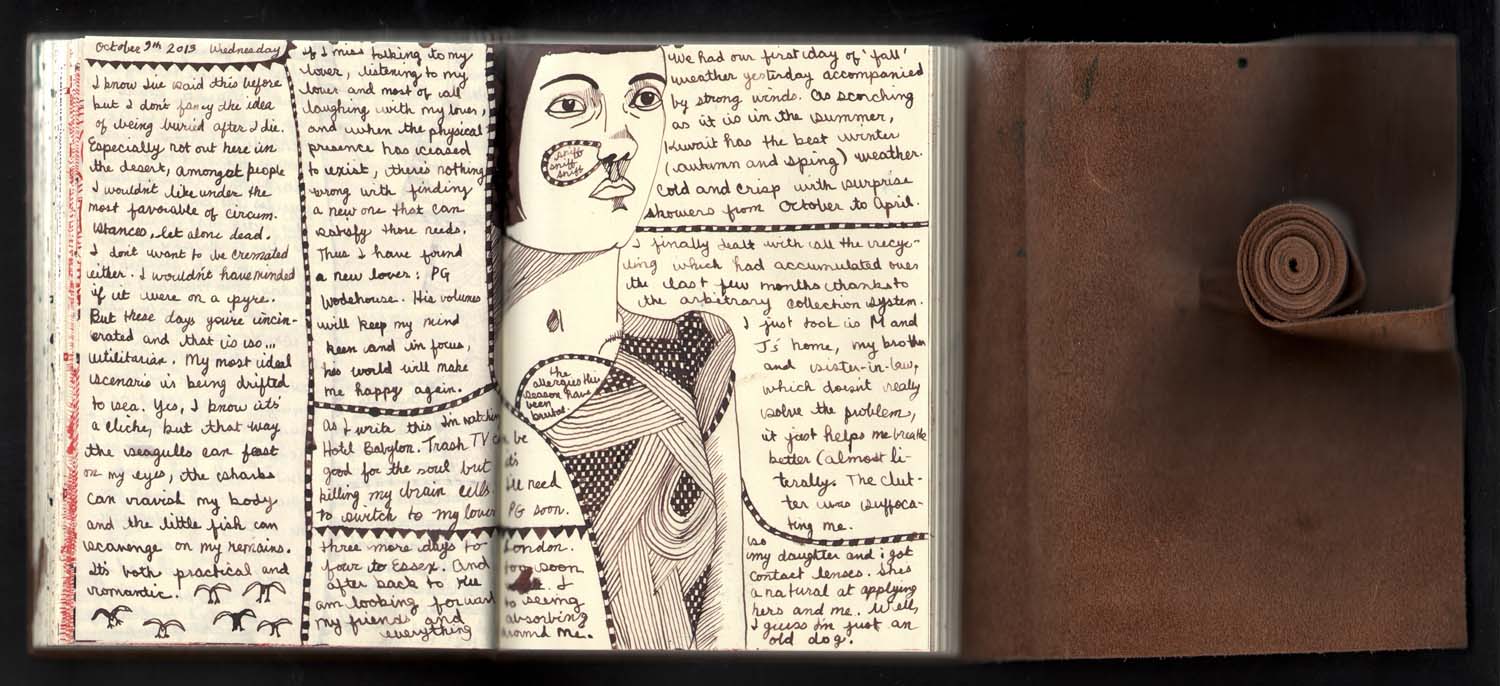 October 9th 2013 Wednesday
I know I've said this before
but I don't fancy the idea
of being buried after I die.
Especially not out here in
the desert, amongst people
I wouldn't like under the
most favorable of circum-
stances, let alone dead.
I don't want to be cremated
either. I wouldn't have minded
if it were on a pyre.
But these days you're incin-
erated and that is so...
utilitarian. My most ideal
scenario is being drifted
to sea. Yes, I know it's
a cliche, but that way
the seagulls can feast
on my eyes, the sharks
can ravish my body
and the little fish can
scavenge on my remains.
It's both practical and
romantic.
if I miss talking to my
lover, listening to my
lover and most of all
laughing with my lover,
and when the physical
presence has ceased
to exist, there's nothing
wrong with finding
a new one that can
satisfy those needs.
Thus I have found
a new lover: PG
Wodehouse. His volumes
will keep my mind
keen and in focus,
his world will make
me happy again.
As I write this I'm watching
Hotel Babylon. Trash TV can be
good for the soul but it's
killing my brain cells. I'll need
to switch to my lover PG soon.
three more days to London.
four to Essex. And too soon
after back to the I
am looking forward to seeing
my friends and absorbing
everything around me.
sniff
sniff
sniff
the
allergies this
season have
been
brutal.
We had our first day of 'fall'
weather yesterday accompanied
by strong winds. As scorching
as it is in the summer,
Kuwait has the best winter
(autumn and sping) weather.
Cold and crisp with surprise
showers from October to April.
I finally dealt with all the recyc-
ling which had accumulated over
the last few months thanks to
the arbitrary collection system.
I just took is M and
J's home, my brother
and sister-in-law,
which doesn't really
solve the problem,
it just helps me breathe
better (almost li-
terally. The clut-
ter was suffoca-
ting me.
so
my daughter and i got
contact lenses. She's
a natural at applying
hers and me. Well,
I guess I'm just an
old dog.